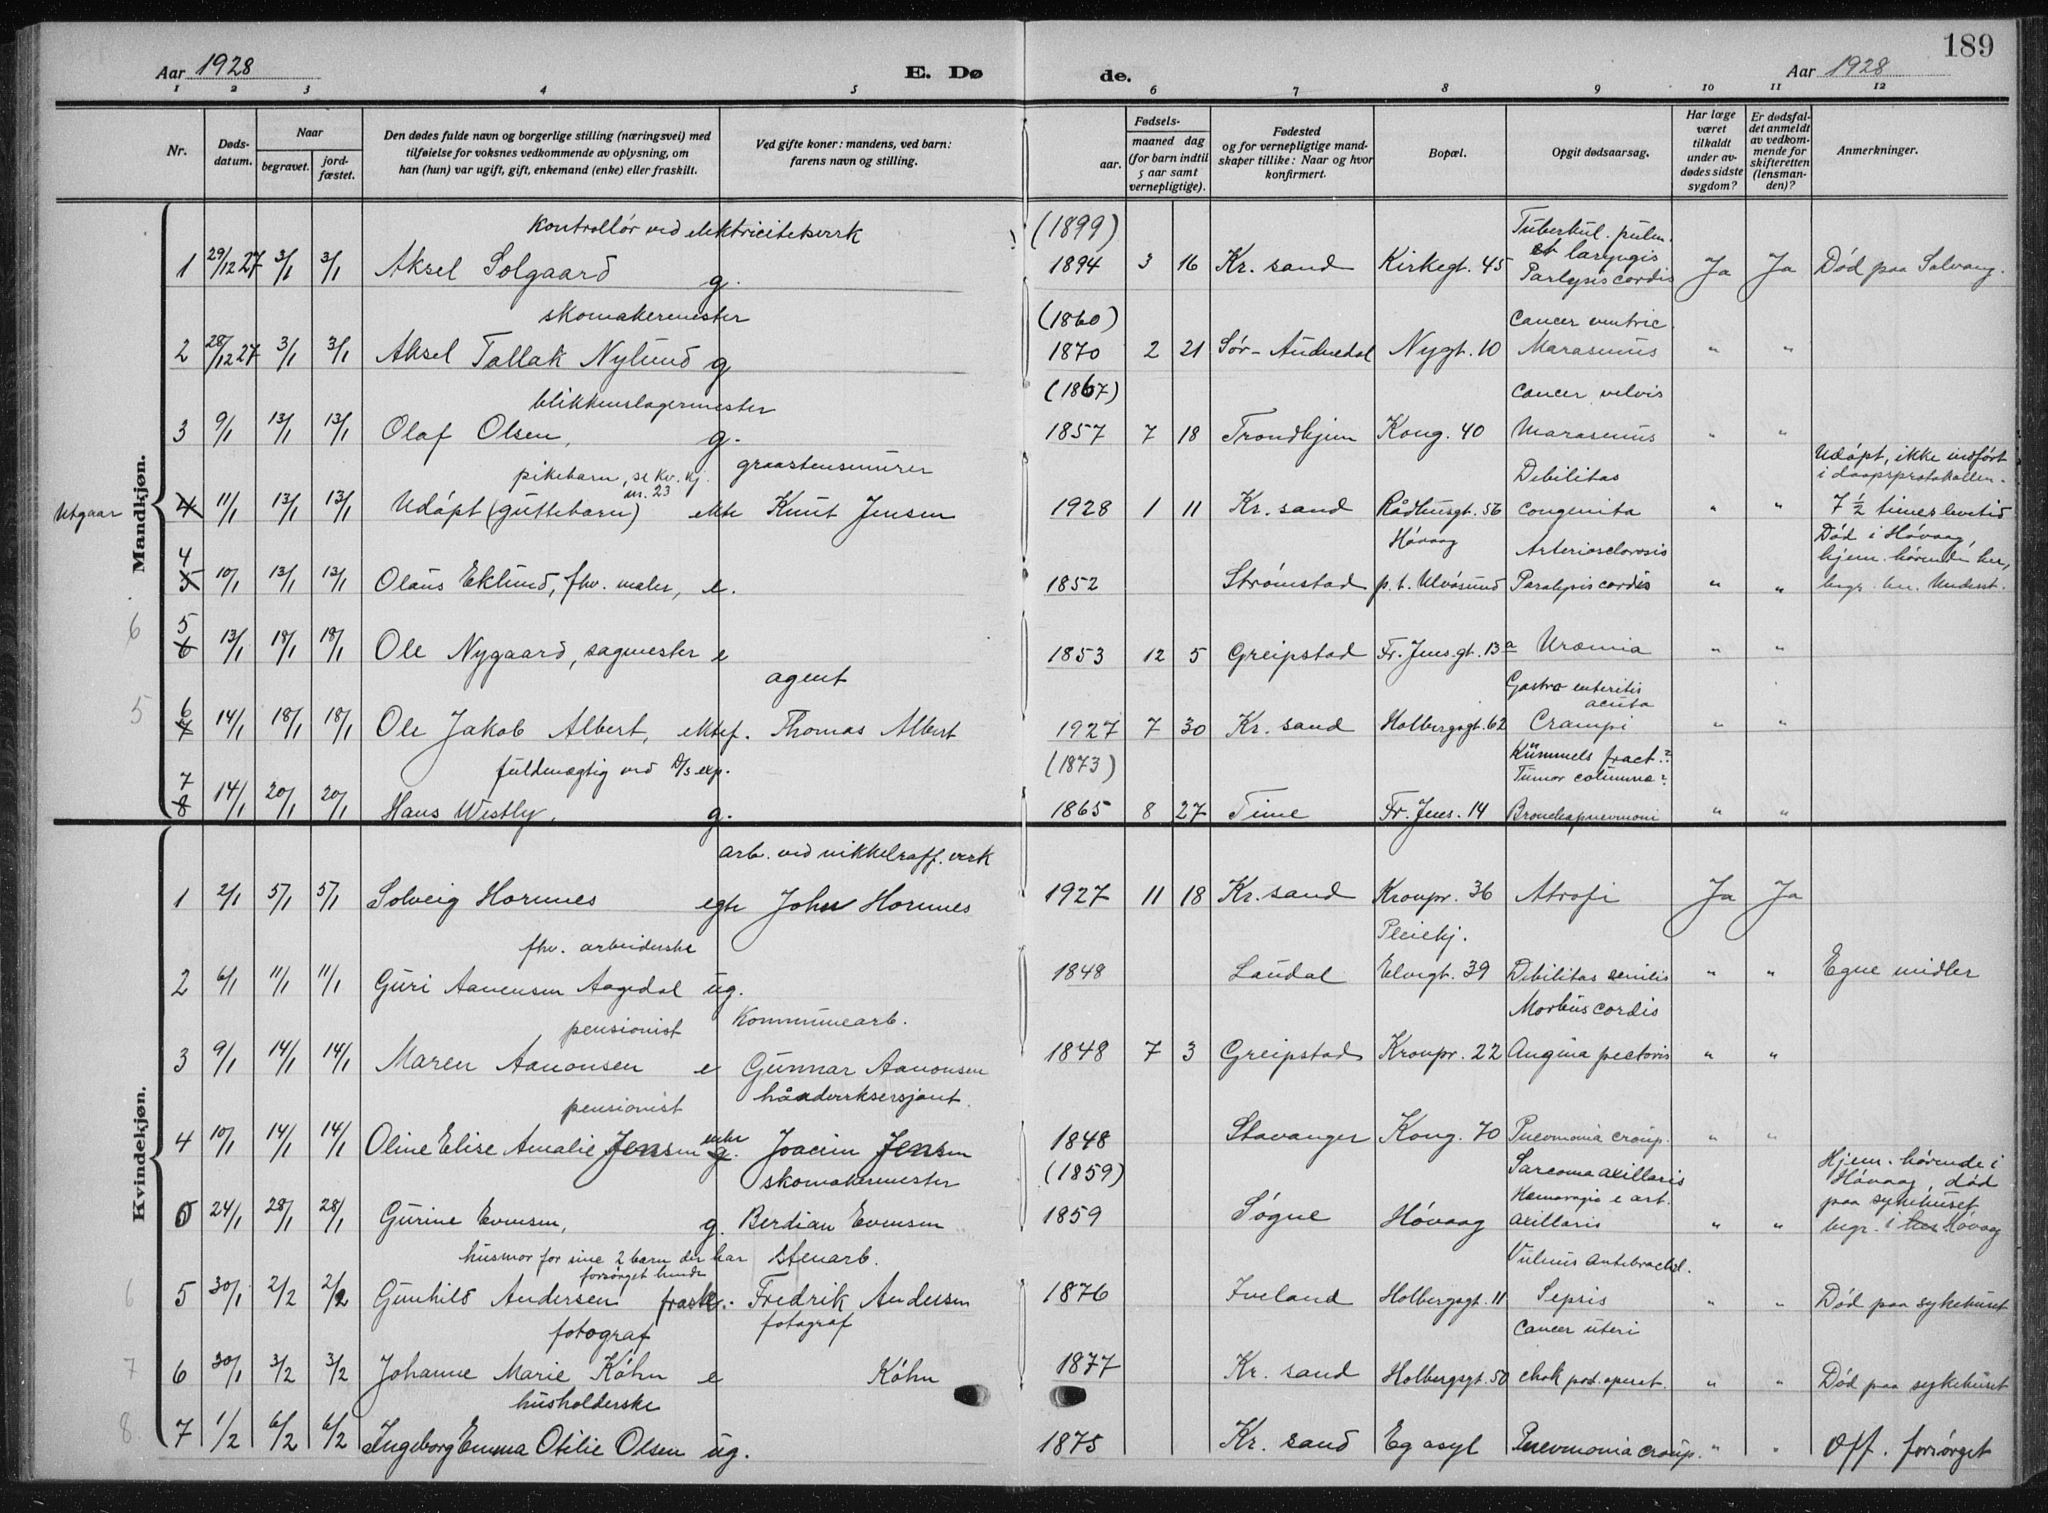 189
Aar 1928 E. Dø de. Aar 1928
1 2 3 4 5 6 7 8 9 10 11 12
Nr. Døds-datum. Naar begravet. jord-fæstet. Den dødes fulde navn og borgerlige stilling (næringsvei) med tilføielse for voksnes vedkommende av oplysning, om han (hun) var ugift, gift, enkemand (enke) eller fraskilt. Ved gifte koner: mandens, ved barn: farens navn og stilling. Fødsels- aar. maaned dag (for barn indtil 5 aar samt vernepligtige). Fødested og for vernepligtige mand-skaper tillike: Naar og hvor konfirmert. Bopæl. Opgit dødsaarsag. Har læge været tilkaldt under av-dødes sidste sygdom? Er dødsfal-det anmeldt av vedkom-mende for skifteretten (lensman-den)? Anmerkninger.
Mandkjøn.
Kontrollør ved elektricitetsverk (1899) Tuberkul. pulm.
et laryngis
1 29/12 27 3/1 3/1 Aksel Solgaard g. 1894 3 16 Kr. sand Kirkegt. 45 Parlysis cordis Ja Ja Død paa Solvang.
skomakermester (1860) Cancer ventric.
2 28/12 27 3/1 3/1 Aksel Tallak Nylund g 1870 2 21 Sør-Audnedal Nygt. 10 Marasmus " "
blikkenslagermester (1867) Cancer pelvis
3 9/1 13/1 13/1 Olaf Olsen, g. 1857 7 18 Trondhjem Kong. 40 Marasmus " "
pikebarn, se Kv. kj. nr. 23 graastensmurer Debilitas Udøpt, ikke indført i daapsprotokollen.
Utgaar 4 11/1 13/1 13/1 Udøpt (guttebarn) ekte Knut Jensen 1928 1 11 Kr. sand Rådhusgt. 56 congenita " " 7 ½ timer levetid
Høvaag Arteriosclerosis Død i Høvaag, hjem. hørende her,
4 5 10/1 13/1 13/1 Olaus Eklund, fhv. maler, e. 1852 Strømstad p.t. Ulvøsund Paralysis cordis " " begr. her. Underst.
6 5 6 13/1 18/1 18/1 Ole Nygaard, sagmester e 1853 12 5 Greipstad Fr. Jens. gt. 13a Uræmia " "
agent Gastro enteritis acuta
5 6 7 14/1 18/1 18/1 Ole Jakob Albert, ektef. Thomas Albert 1927 7 30 Kr. sand Holbergsgt. 62 Crampi " "
fuldmægtig ved D/S exp. (1873) Kümmels fract.?
Tumor columna?
7 8 14/1 20/1 20/1 Hans Westly, g. 1865 8 27 Time Fr. Jens. 14 Bronchopnevmoni " "
Kvindekjøn.
arb. ved nikkelraff. verk
1 2/1 5/1 5/1 Solveig Hornnes egte John Hornnes 1927 11 18 Kr. sand Kronpr. 36 Atrofi Ja Ja
fhv. arbeiderske Pleiehj.
2 6/1 11/1 11/1 Guri Aanensen Aagedal ug. 1848 Laudal Elvegt. 39 Debilitas senilis " " Egne midler
pensionist Kommunearb. Morbus cordis
3 9/1 14/1 14/1 Maren Aanonsen e Gunnar Aanonsen 1848 7 3 Greipstad Kronpr. 22 Angina pectoris " "
pensionist håndverksersjant.
4 10/1 14/1 14/1 Oline Elise Amalie Jensen enke g. Joacim Jensen 1848 Stavanger Kong. 70 Pnevmonia croup. " "
skomakermester (1859) Sarcoma axillaris Hjem. hørende i Høvaag, død
Hæmoragia e art. paa sykehuset
0 24/1 28/1 28/1 Gurine Evensen, g. Berdian Evensen 1859 Søgne Høvaag axillaris " " begr. i her Høvaag
husmor for sine 2 barn der har forsørget hende stenarb. Vulnus antebrachel.
6 5 30/1 2/2 2/2 Gunhild Andersen frask. Fredrik Andersen 1876 Iveland Holbergsgt. 11 Sepsis " " Død paa sykehuset
fotograf fotograf Cancer uteri
7 6 30/1 3/2 3/2 Johanne Marie Køhn e Køhn 1877 Kr. sand Holbergsgt. 50 chok post operat. " " Død paa sykehuset
husholderske
8 7 1/2 6/2 6/2 Ingeborg Emma Otilie Olsen ug. 1875 Kr. sand Eg asyl Pnevmonia croup. " " Off. forsørget